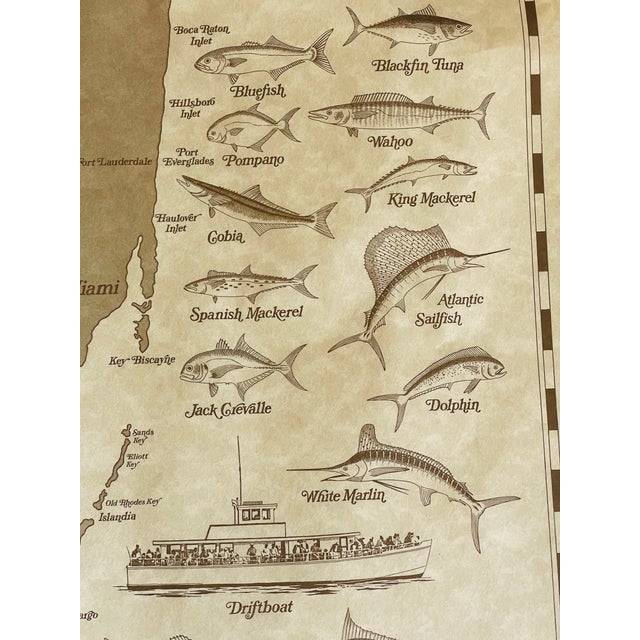 Boca Raton
Inlet
Bluefish
Blackfin Tuna
Hillsboro
Inlet
Wahoo
Port
Everglades
Pompano
Fort Lauderdale
King Mackerel
Haulover
Inlet
Cobia
Atlantic
Sailfish
iami
Spanish Mackerel
Key Biscayne
Jack Crevalle
Dolphin
Sands
Key
Eliott
Key
White Marlin
Old Rhodes Key
Islandia
Driftboat
argo